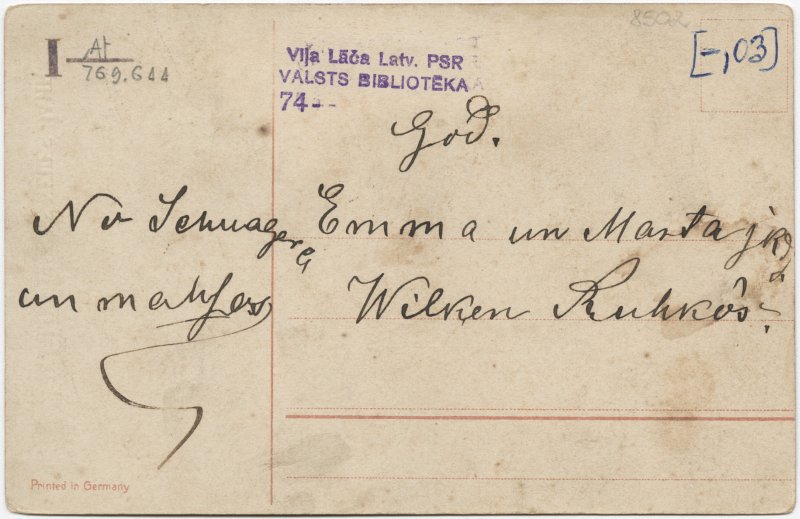 8502
I At
769.644
Viļa Lāča Latv. PSR
VALSTS BIBLIOTĒKA
74--
[-,03]
God.
No Schwagera
un mahsas
Emma un Marta jkdz
Wilken Ruhkôs.
Printed in Germany